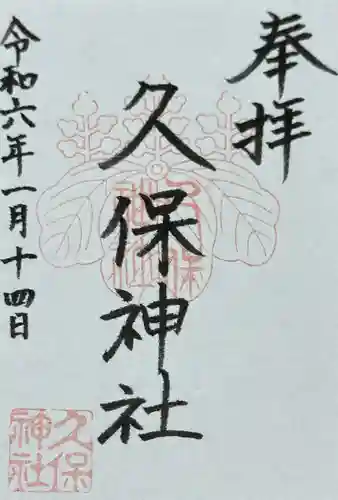 奉拝
久保神社
令和六年一月十四日
久保
神社
久保
神社